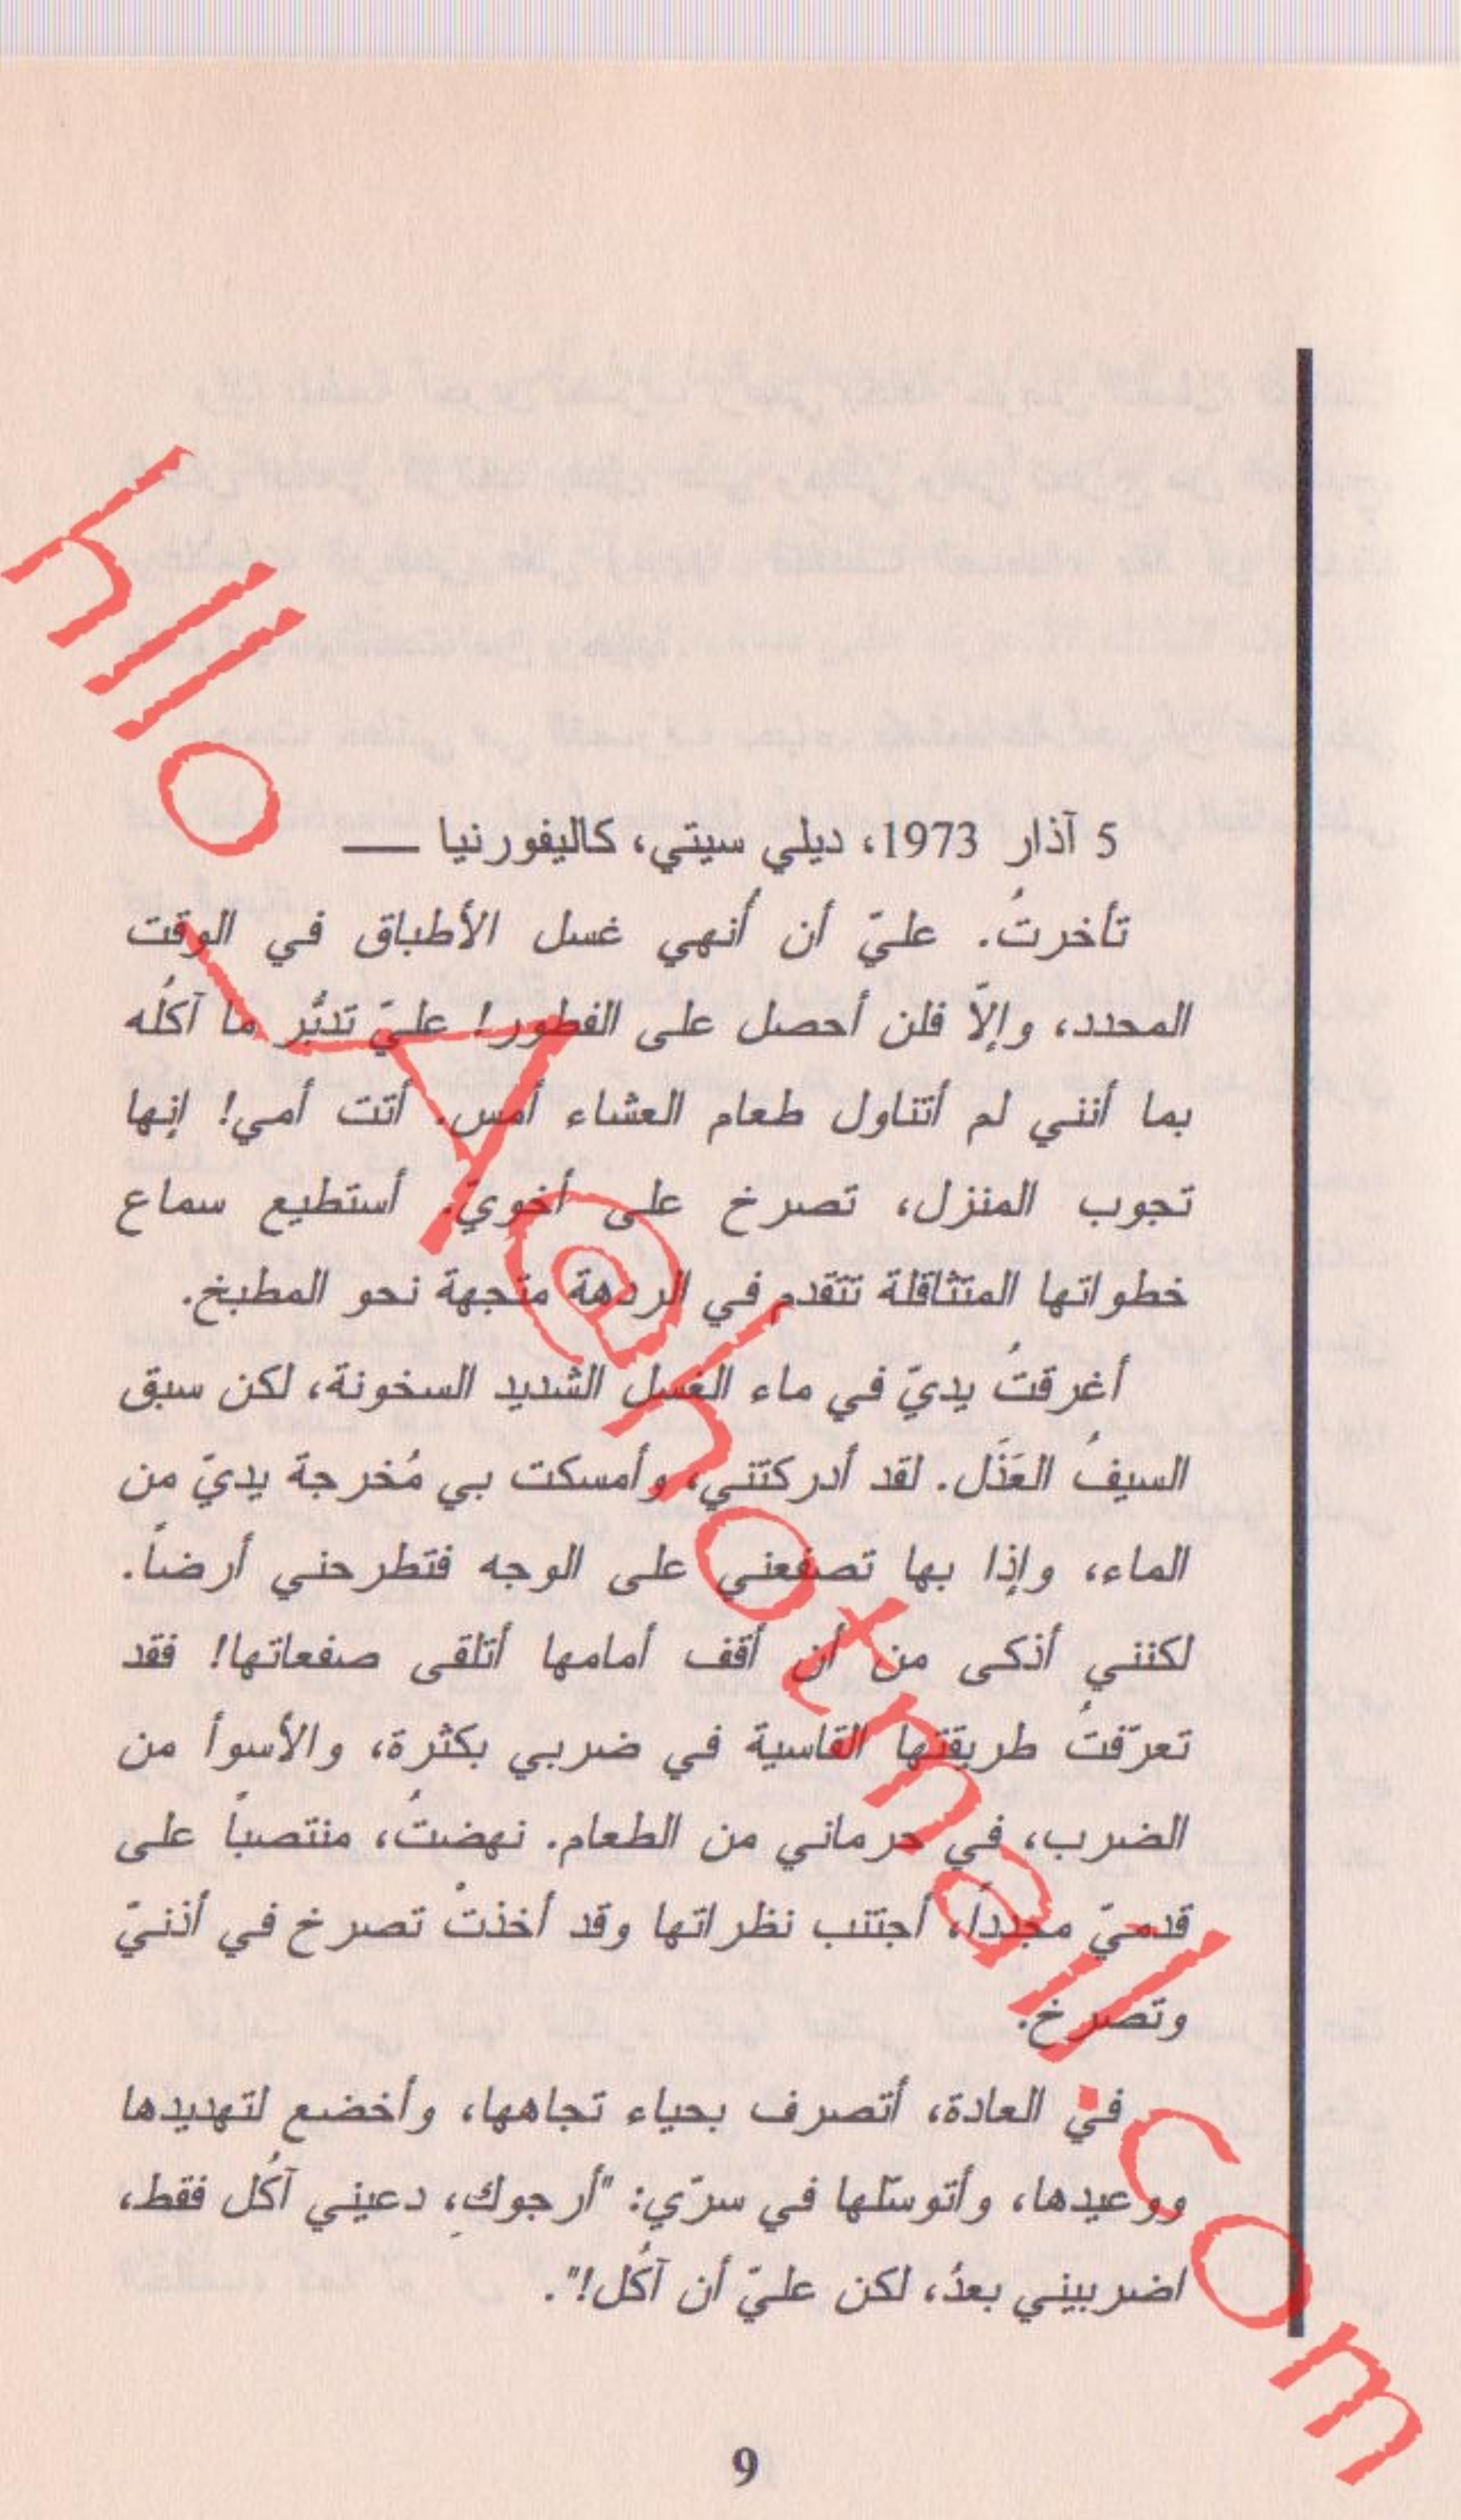 5 آذار 1973، ديلي سيتي، كاليفورنيا —
تأخرتُ. عليّ أن أُنهي غسل الأطباق في الوقت
المحدد، وإلاّ فلن أحصل على الفطور! عليّ تدبُّر ما آكلُه
بما أنني لم أتناول طعام العشاء أمس. أتت أمي! إنها
تجوب المنزل، تصرخ على أخويّ. أستطيع سماع
خطواتها المتثاقلة تتقدم في الردهة متجهة نحو المطبخ.
أغرقتُ يديّ في ماء الغسل الشديد السخونة، لكن سبق
السيفُ العَذَل. لقد أدركتني، وأمسكت بي مُخرجة يديّ من
الماء، وإذا بها تصفعني على الوجه فتطرحني أرضاً.
لكنني أذكى من أن أقف أمامها أتلقى صفعاتها! فقد
تعرّفتُ طريقتها القاسية في ضربي بكثرة، والأسوأ من
الضرب، في حرماني من الطعام. نهضتُ، منتصباً على
قدميّ مجدداً، أجتنب نظراتها وقد أخذتْ تصرخ في أذنيّ
وتصرخ.
في العادة، أتصرف بحياء تجاهها، وأخضع لتهديدها
ووعيدها، وأتوسّلها في سرّي: "أرجوكِ، دعيني آكُل فقط،
اضربيني بعدُ، لكن عليّ أن آكُل!".
9
hllo_Y@hotmail.com